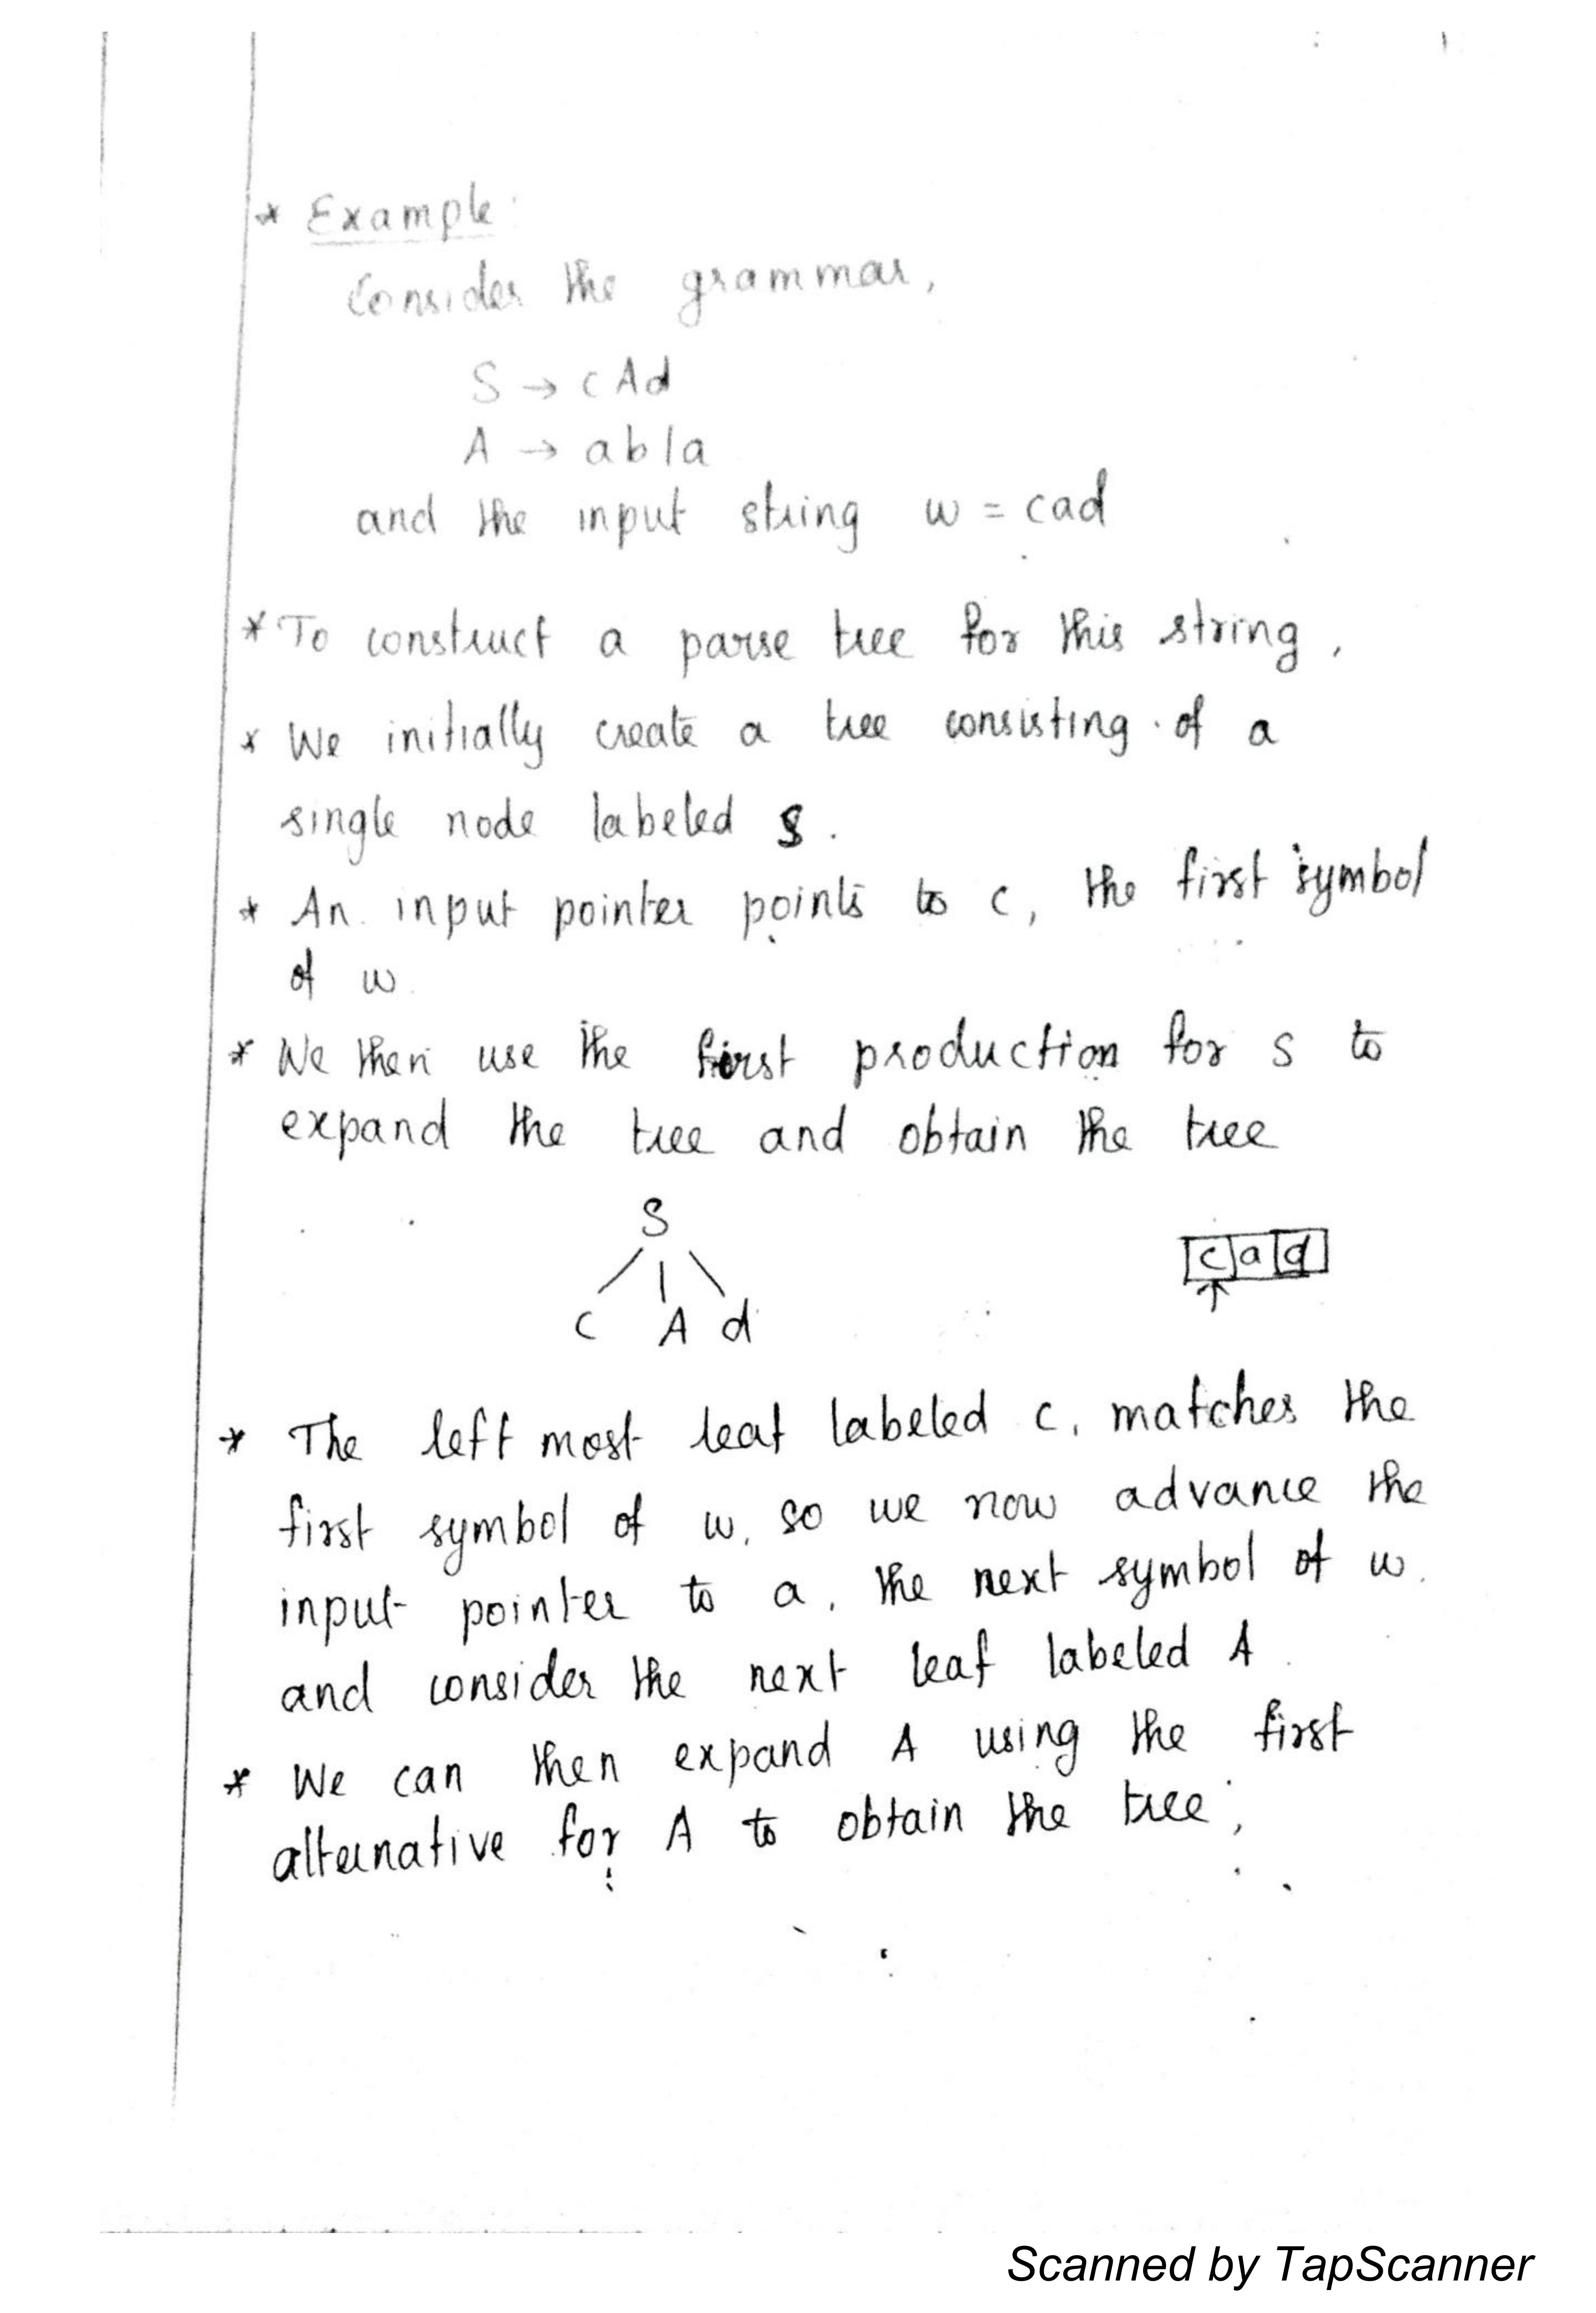 * Example:
Consider the grammar,
S → cAd
A → ab|a
and the input string w = cad
* To construct a parse tree for this string,
* We initially create a tree consisting of a
single node labeled S.
* An input pointer points to c, the first symbol
of w.
* We then use the first production for S to
expand the tree and obtain the tree
S
c A d
c a d
↑
* The left most leaf labeled c, matches the
first symbol of w, so we now advance the
input pointer to a, the next symbol of w.
and consider the next leaf labeled A.
* We can then expand A using the first
alternative for A to obtain the tree;
Scanned by TapScanner